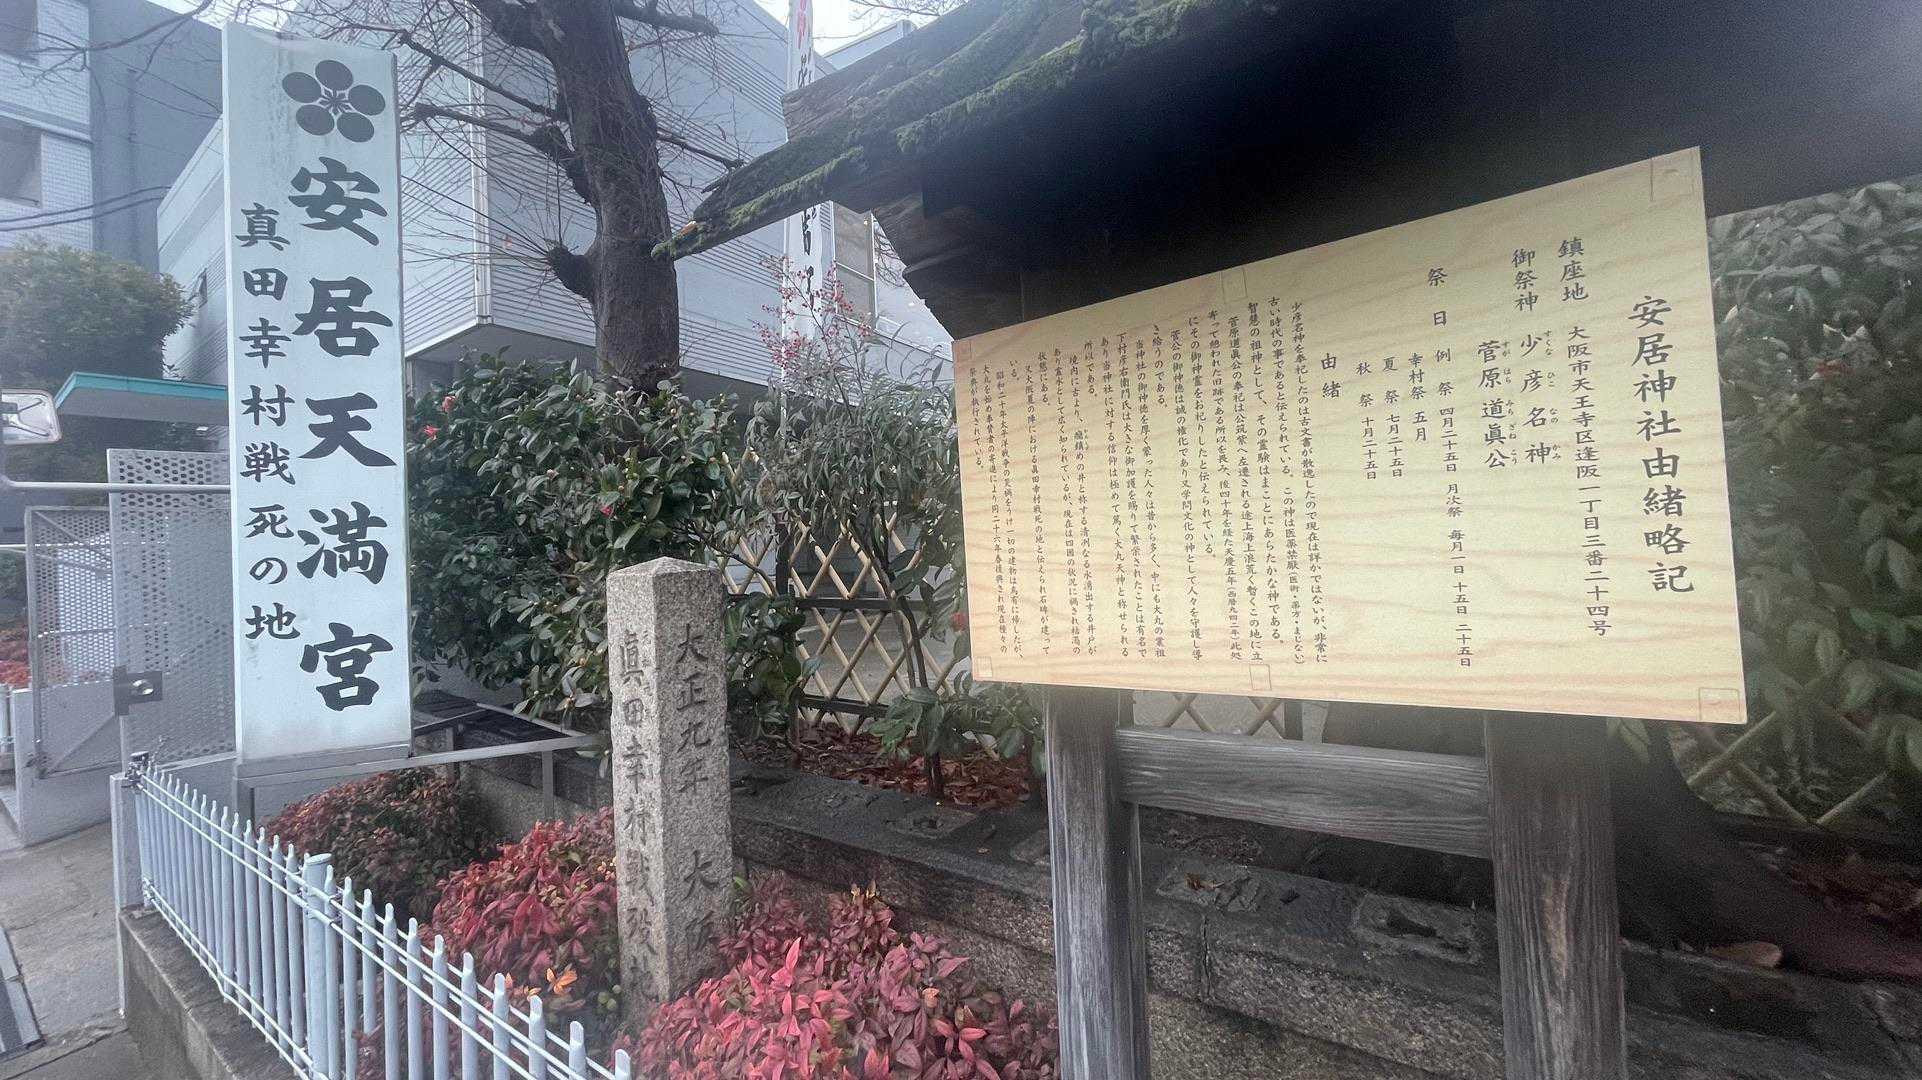 安居天満宮
真田幸村戦死の地
大正九年 大阪
眞田幸村戦歿
安居神社由緒略記
鎮座地 大阪市天王寺区逢阪一丁目三番二十四号
御祭神 少彦名神
すくな ひこ なの かみ
菅原道眞公
すが はら みち ざね こう
祭日 例祭 四月二十五日 月次祭 毎月一日 十五日 二十五日
幸村祭 五月
夏祭 七月二十五日
秋祭 十月二十五日
由緒
少彦名神を奉祀したのは古文書が散逸したので現在は詳かではないが、非常に
古い時代の事であると伝えられている。この神は医薬禁厭(医術・薬方・まじない)
智慧の祖神として、その霊験はまことにあらたかな神である。
菅原道眞公の奉祀は公筑紫へ左遷される途上海上浪荒く暫くこの地に立
寄って憩われた旧跡である所以を畏み、後四十年を経た天慶五年(西暦九四二年)此処
にその御神霊をお祀りしたと伝えられている。
菅公の御神徳は誠の権化であり又学問文化の神として人々を守護し導
き給うのである。
当神社の御神徳を厚く蒙った人々は昔から多く、中にも大丸の業祖
下村彦右衛門氏は大きな御加護を賜りて繁栄されたことは有名で
あり当神社に対する信仰は極めて篤く大丸天神と称せられる
所以である。
境内に古より、癇鎮めの井と称する清冽なる水湧出する井戸が
あり霊水として広く知られているが、現在は四囲の状況に禍され枯渇の
状態にある。
又大阪夏の陣における眞田幸村戦死の地と伝えられ石碑が建って
いる。
昭和二十年太平洋戦争の災禍をうけ一切の建物は烏有に帰したが、
大丸を始め奉賛者の寄進により同二十六年春復興され現在種々の
祭典が執行されている。